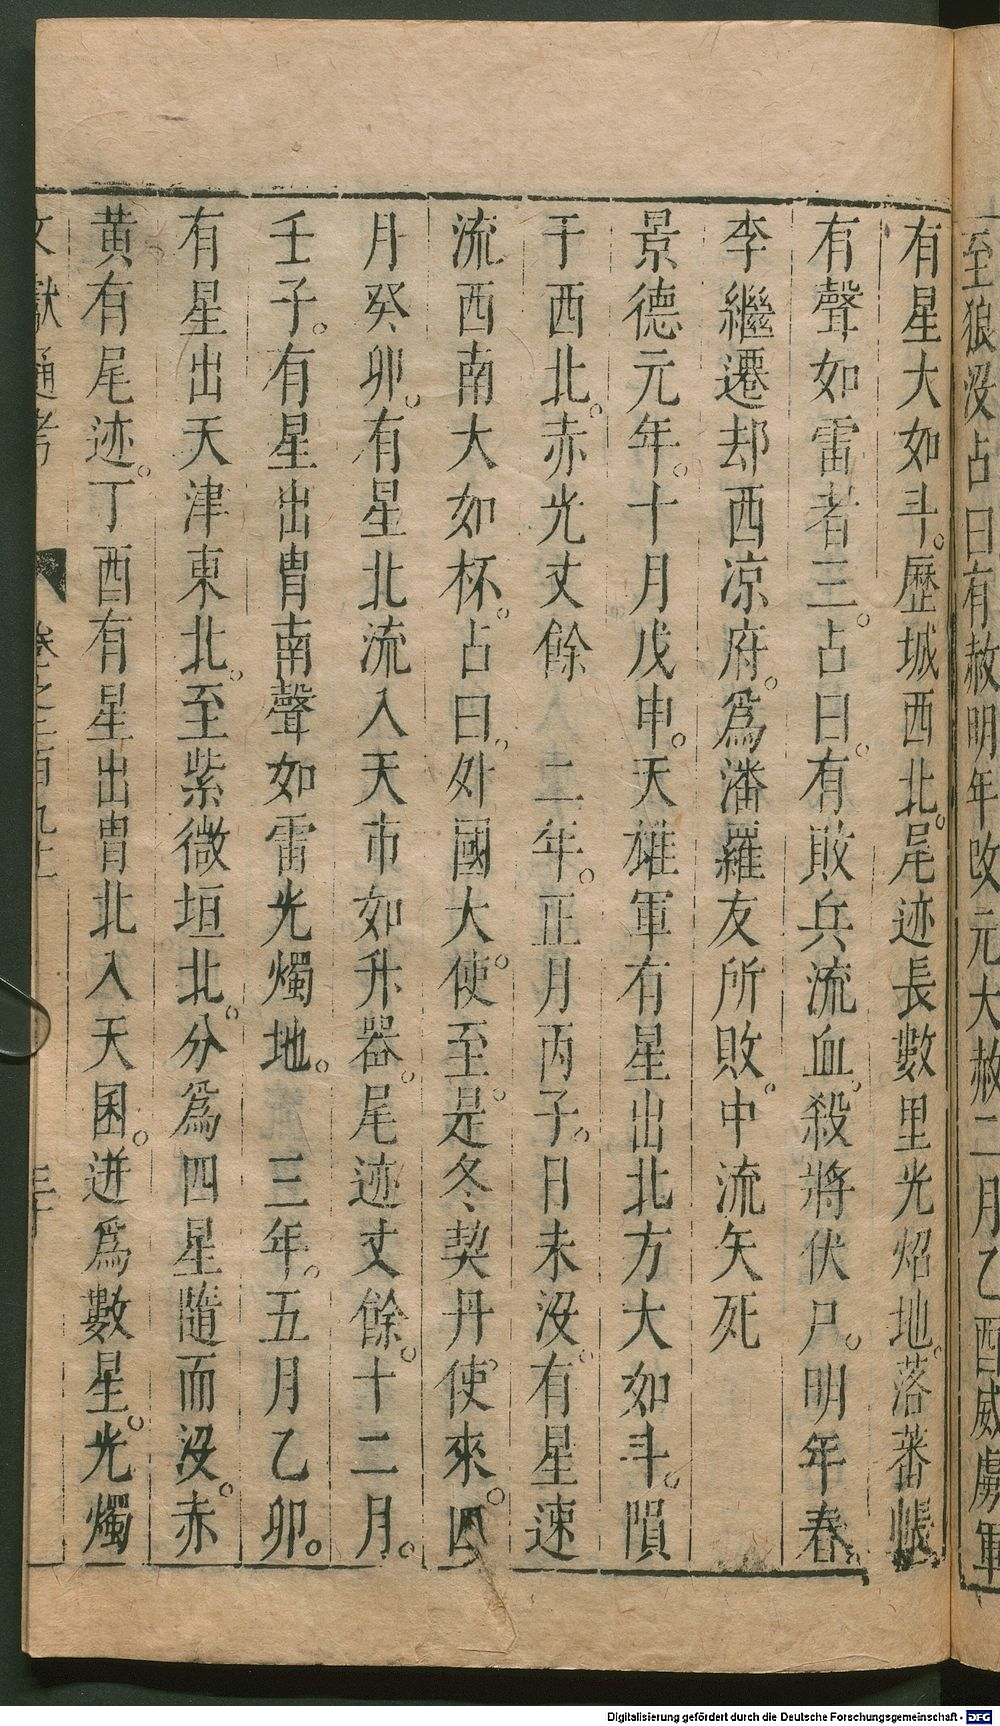 至狼没占曰有赦明年改元大赦二月乙酉威虜軍
有星大如斗。歷城西北。尾迹長數里光炤地。落蕃帳
有聲如雷者三。占曰。有敗兵流血。殺將伏尸。明年春。
李繼遷却西凉府。爲潘羅友所敗。中流矢死
景德元年。十月戊申。天雄軍有星出北方大如斗。隕
于西北。赤光丈餘 二年。正月丙子。日未没。有星速
流西南大如杯。占曰。外國大使至。是冬契丹使來。四
月癸卯。有星北流入天市如升器。尾迹丈餘。十二月。
壬子。有星出胃南聲如雷光燭地。 三年。五月乙卯。
有星出天津東北。至紫微垣北。分爲四星隨而没。赤
黄有尾迹。丁酉有星出胃北入天囷。迸爲數星。光燭
文獻通考 卷之二百九十 三十
Digitalisierung gefördert durch die Deutsche Forschungsgemeinschaft - DFG